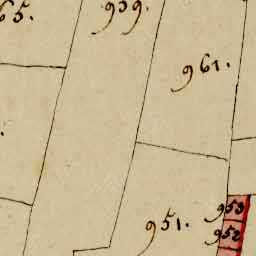 65.
939.
961.
953
951.
952